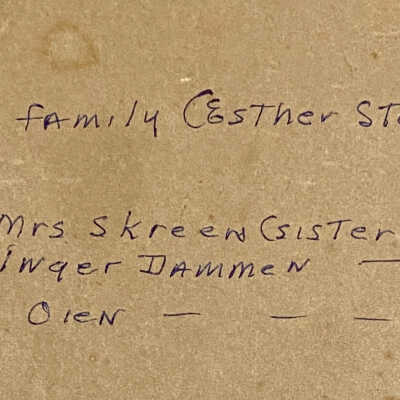 FAMILY (ESTHER ST
Mrs SkreeN (SISTER
iNger DAMMEN —
OIEN — — —